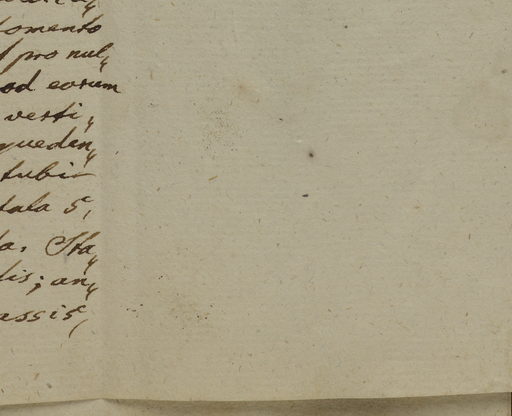 omento
pro nul„
od eorum
vesti„
queden„
tubi
tata 5,
ta. Sta„
lis; an„
assis,